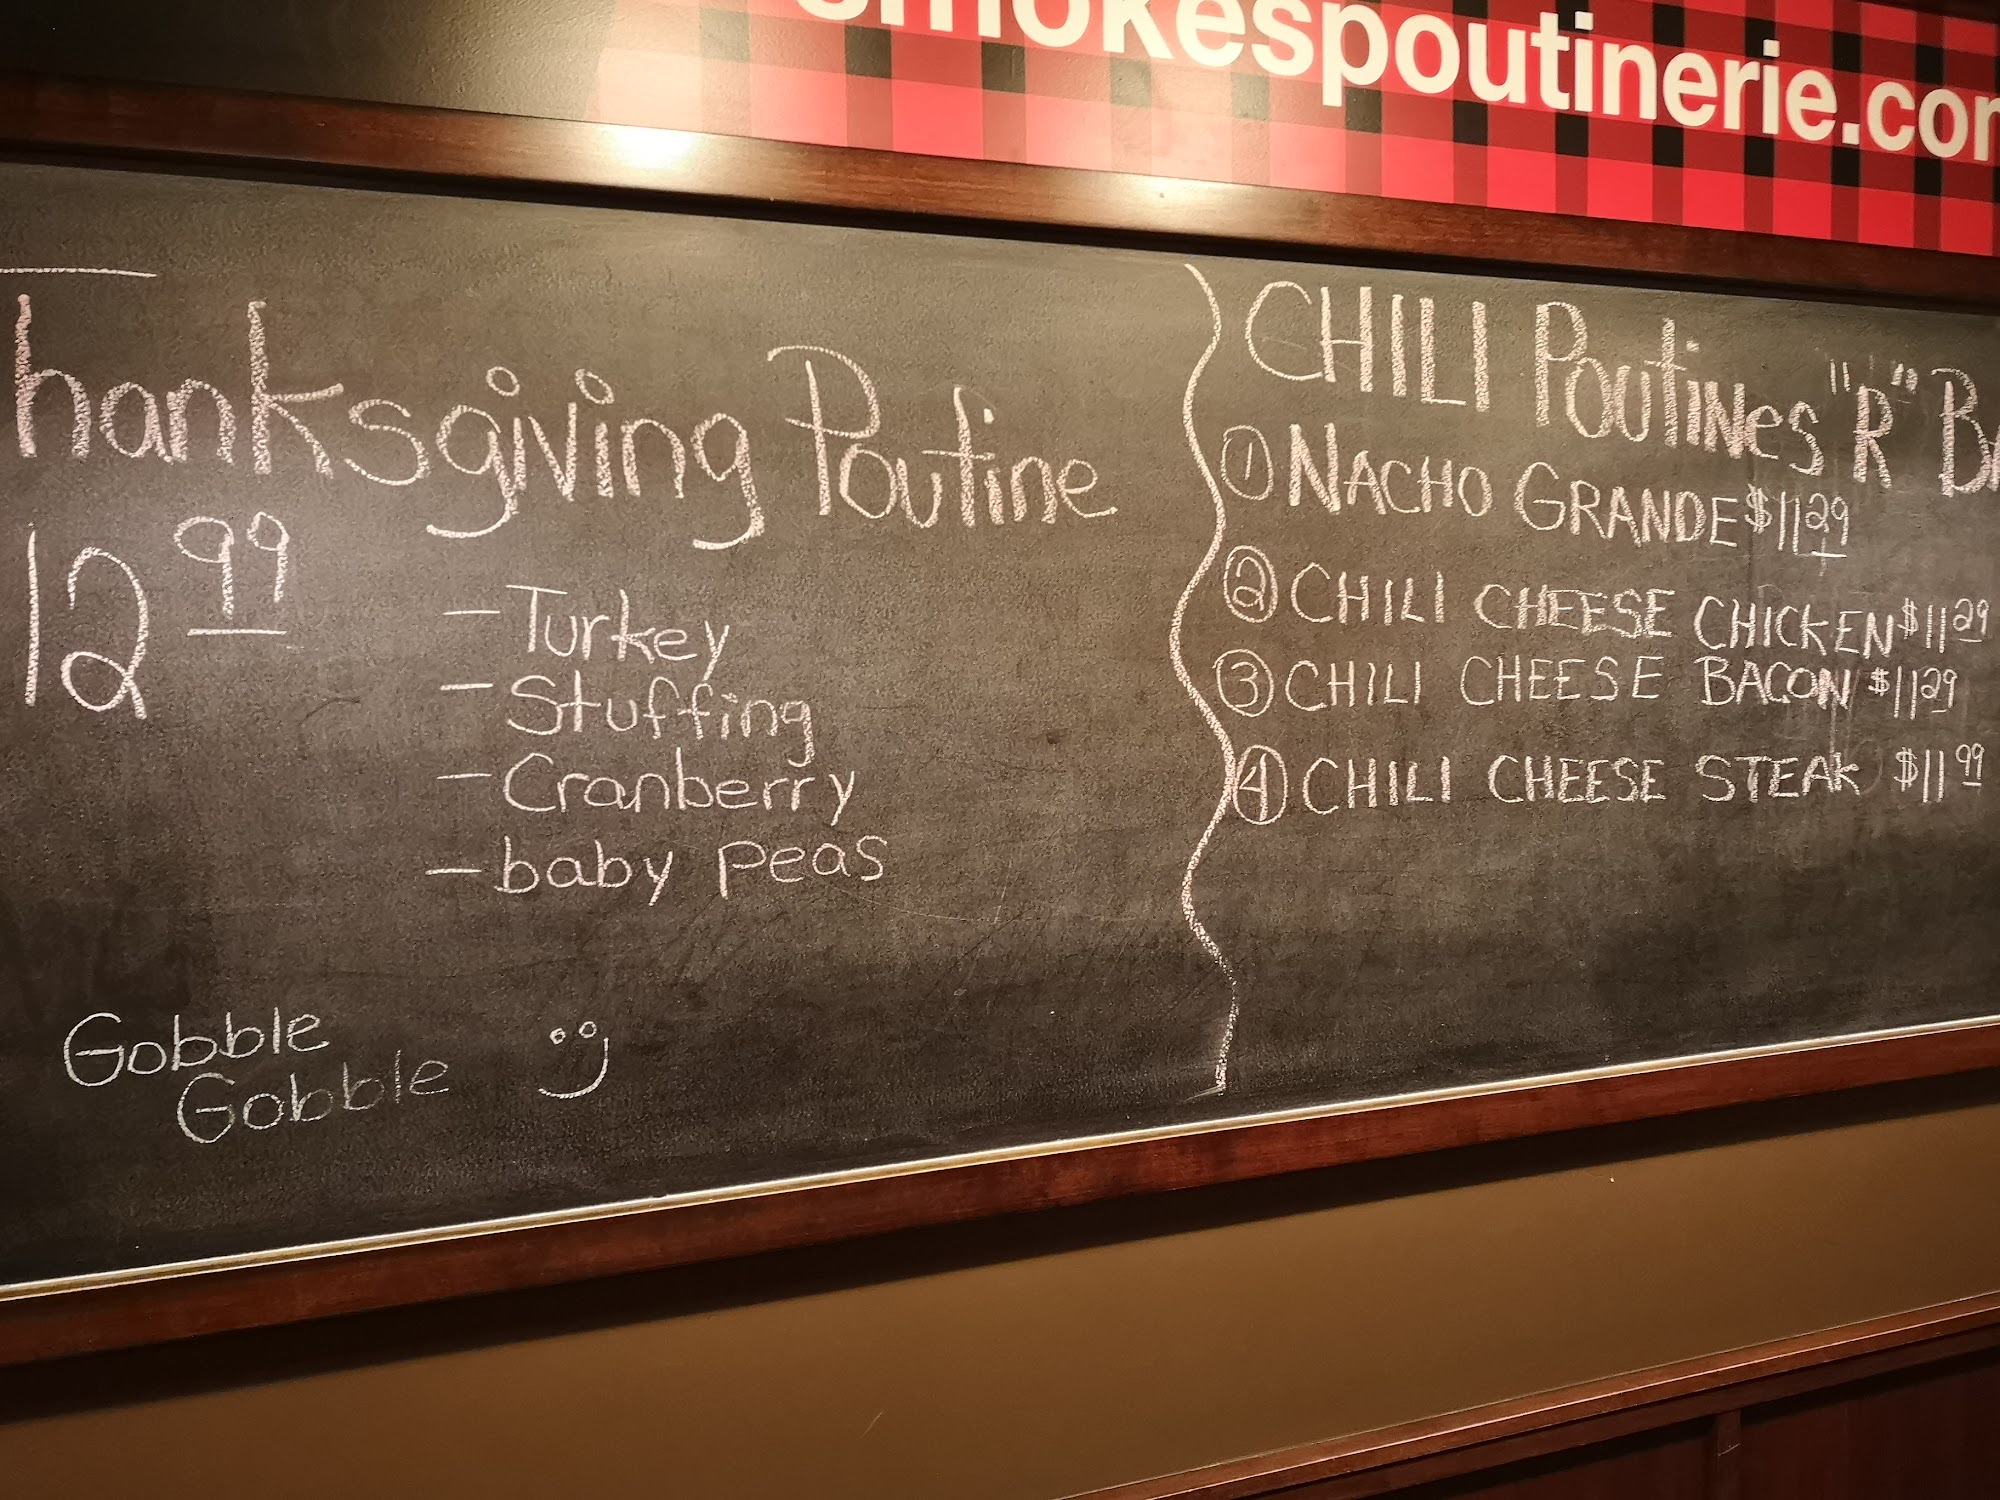 smokespoutinerie.com
Thanksgiving Poutine
12.99
- Turkey
- Stuffing
- Cranberry
- baby peas
Gobble
Gobble
CHILI Poutines "R" BA
① NACHO GRANDE $11.29
② CHILI CHEESE CHICKEN $11.29
③ CHILI CHEESE BACON $11.29
④ CHILI CHEESE STEAK $11.99